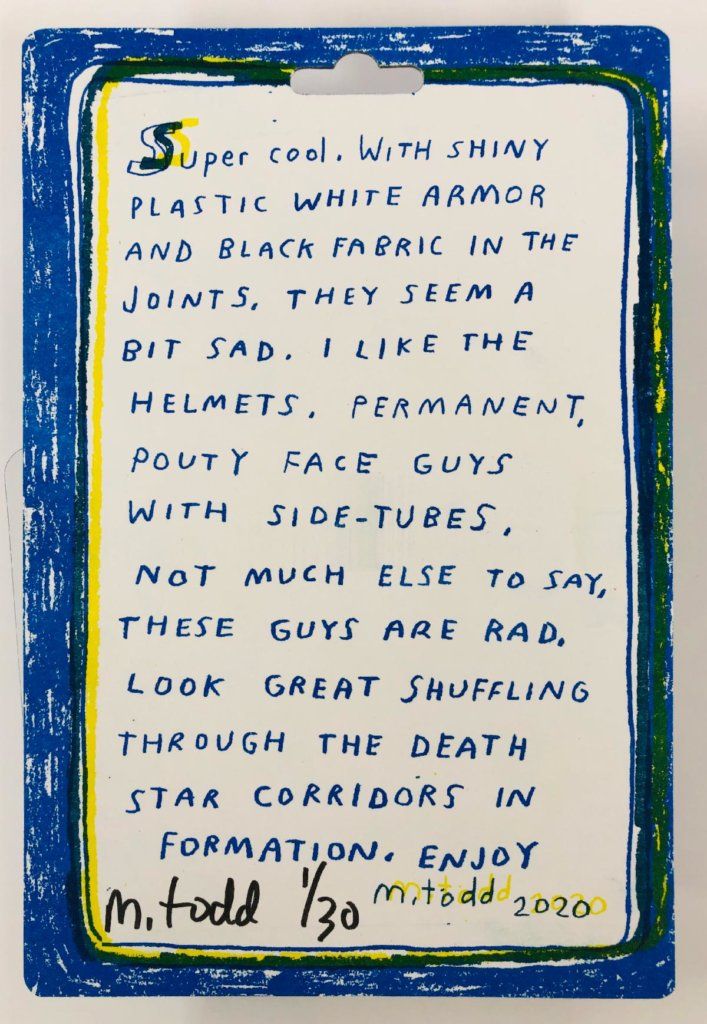 Super cool. WITH SHINY
PLASTIC WHITE ARMOR
AND BLACK FABRIC IN THE
JOINTS. THEY SEEM A
BIT SAD. I LIKE THE
HELMETS. PERMANENT,
POUTY FACE GUYS
WITH SIDE-TUBES.
NOT MUCH ELSE TO SAY,
THESE GUYS ARE RAD.
LOOK GREAT SHUFFLING
THROUGH THE DEATH
STAR CORRIDORS IN
FORMATION. ENJOY
m.todd 1/30 m.todd 2020